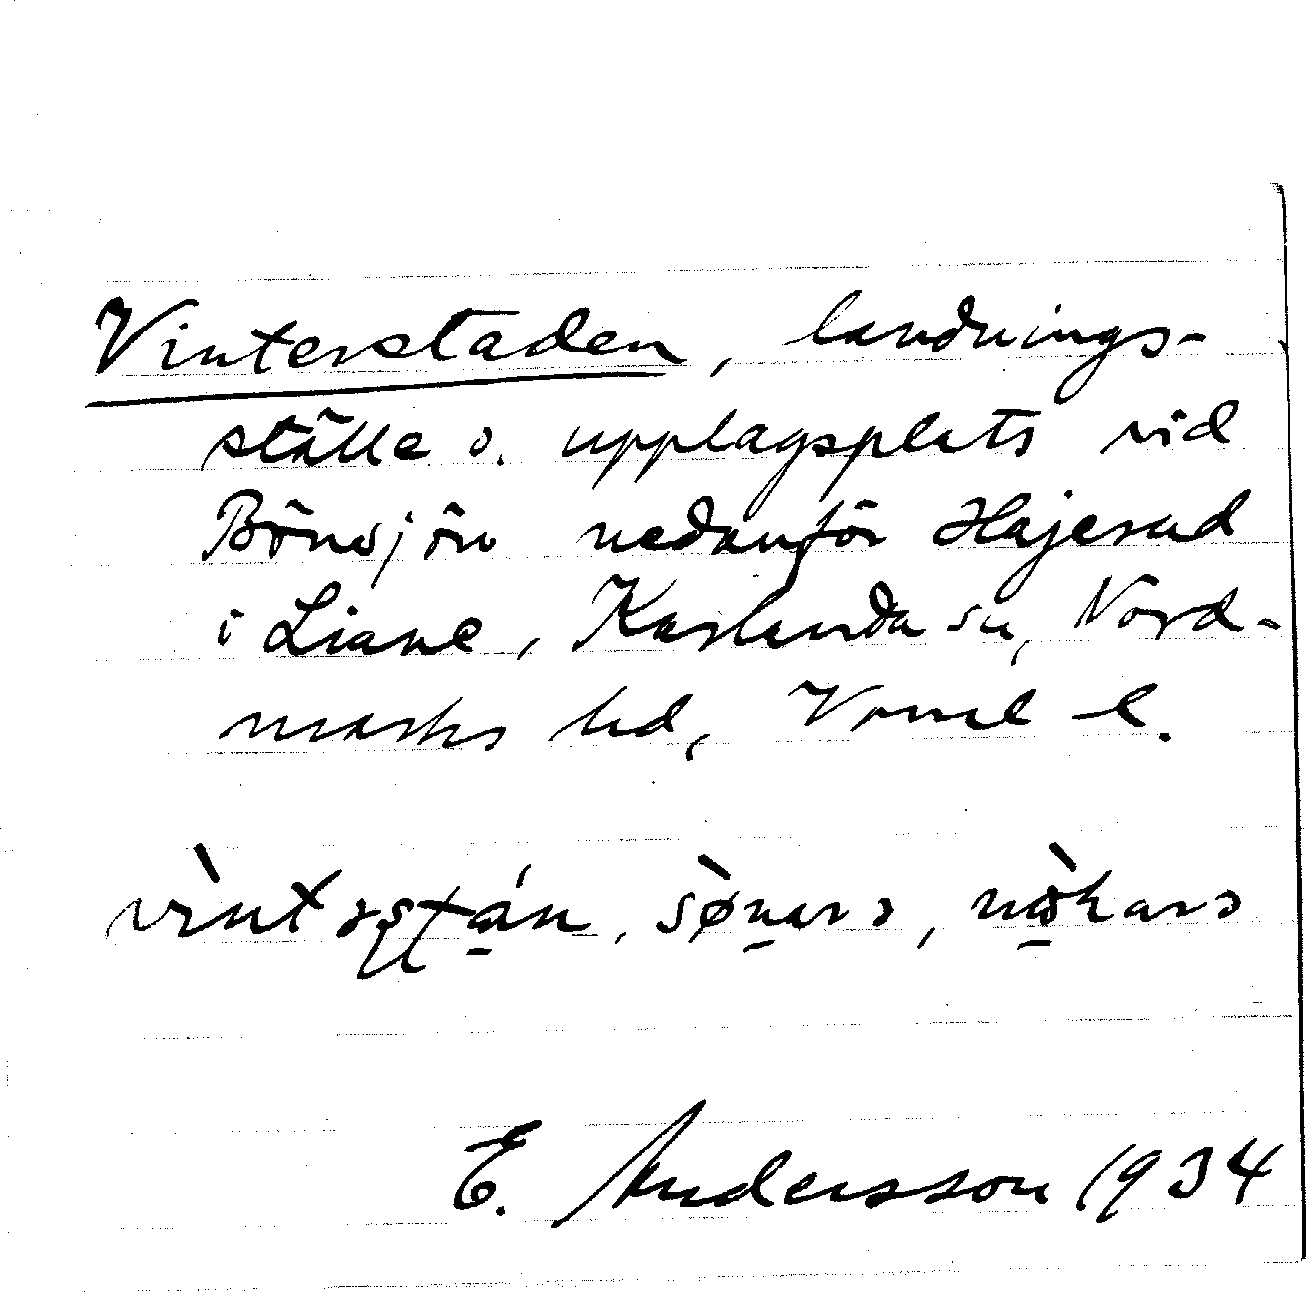 Vinterstaden, landnings-
ställe o. upplagsplats vid
Bönsjön nedanför Hajesud
i Liane, Karlanda sn, Nord-
marks hd, Vrml l.
vìntəstán, sø̀narə, nòkarə
E. Andersson 1934